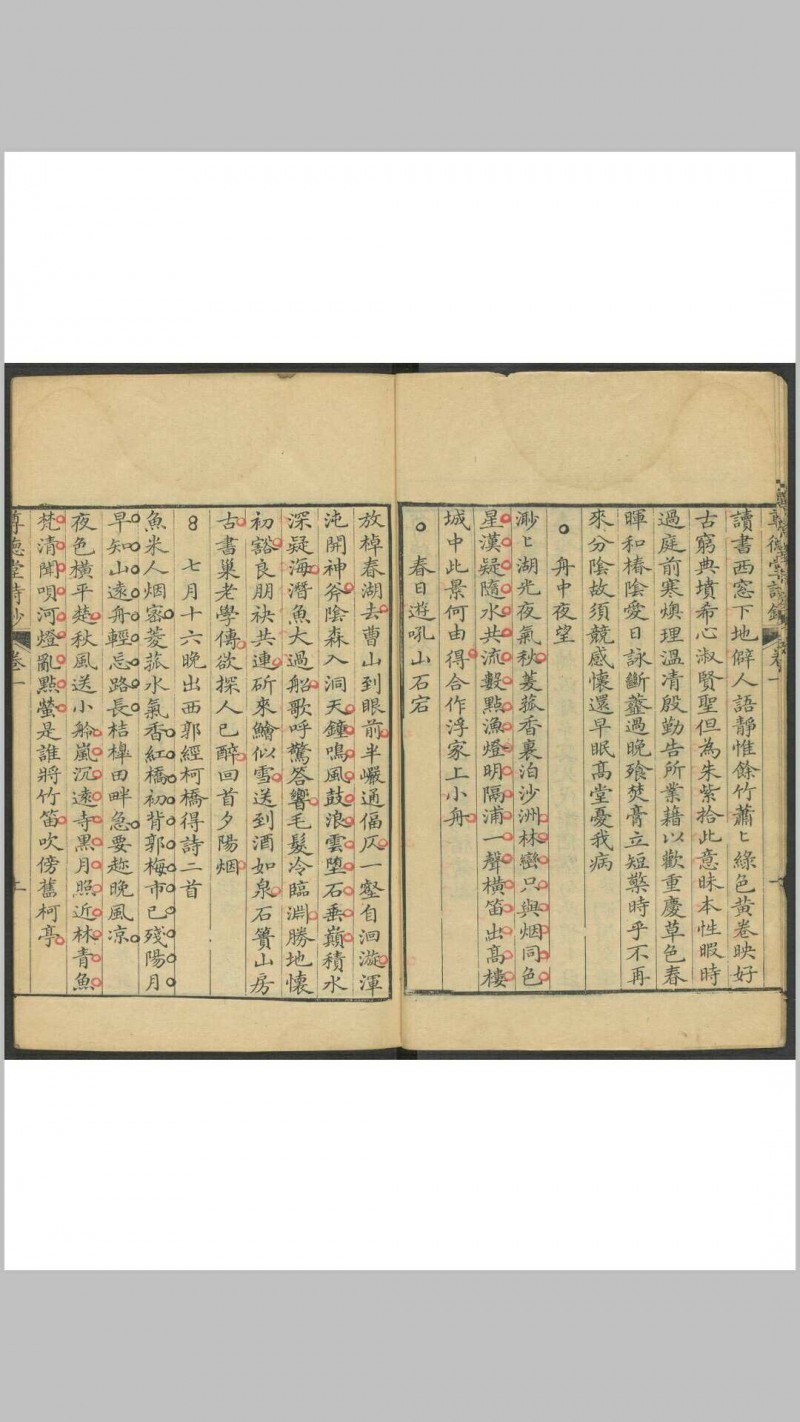 讀書西窓下地僻人語靜惟餘竹蕭〻綠色黃卷映好
古窮典墳希心淑賢聖但為朱紫拾此意昧本性暇時
過庭前寒燠理温凊殷勤告所業藉以歡重慶草色春
暉和椿陰愛日詠斷虀過晚飱焚膏立短檠時乎不再
來分陰故須競感懷還早眠高堂憂我病
舟中夜望
渺〻湖光夜氣秋菱菰香裏泊沙洲林巒只與烟同色
星漢疑隨水共流數點漁燈明隔浦一聲橫笛出高樓
城中此景何由得合作浮家上小舟
春日遊吼山石宕
放棹春湖去曹山到眼前半巖通偪仄一壑自洄漩渾
沌開神斧陰森入洞天鐘鳴風鼓浪雲墮石垂巔積水
深疑海潛魚大過船歌呼驚答響毛髮冷臨淵勝地懷
初豁良朋袂共連斫來鱠似雪送到酒如泉石簣山房
古書巢老學傳欲探人已醉回首夕陽烟
七月十六晚出西郭經柯橋得詩二首
魚米人烟密菱菰水氣香紅橋初背郭梅市已殘陽月
早知山遠舟輕忘路長桔槹田畔急要趂晚風凉
夜色橫平楚秋風送小舲嵐沉遠寺黑月照近林青魚
梵清聞唄河燈亂點螢是誰將竹笛吹傍舊柯亭
尊德堂詩鈔 卷一